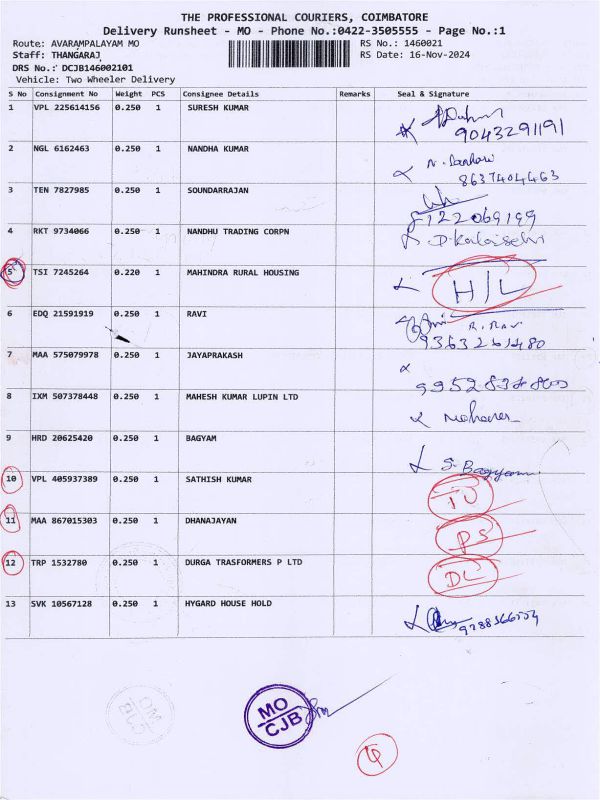 THE PROFESSIONAL COURIERS, COIMBATORE
Delivery Runsheet - MO - Phone No.:0422-3505555 - Page No.:1
Route: AVARAMPALAYAM MO RS No.: 1460021
Staff: THANGARAJ RS Date: 16-Nov-2024
DRS No.: DCJB146002101
Vehicle: Two Wheeler Delivery
S No Consignment No Weight PCS Consignee Details Remarks Seal & Signature
1 VPL 225614156 0.250 1 SURESH KUMAR
9043291191
2 NGL 6162463 0.250 1 NANDHA KUMAR
8637404463
3 TEN 7827985 0.250 1 SOUNDARRAJAN
8122069199
4 RKT 9734066 0.250 1 NANDHU TRADING CORPN D. Kalaiselvi
5 TSI 7245264 0.220 1 MAHINDRA RURAL HOUSING H/L
6 EDQ 21591919 0.250 1 RAVI R. Ravi
9363261480
7 MAA 575079978 0.250 1 JAYAPRAKASH
8 IXM 507378448 0.250 1 MAHESH KUMAR LUPIN LTD
9 HRD 20625420 0.250 1 BAGYAM S. Bagyam
10 VPL 405937389 0.250 1 SATHISH KUMAR
11 MAA 867015303 0.250 1 DHANAJAYAN PS
12 TRP 1532780 0.250 1 DURGA TRASFORMERS P LTD DL
13 SVK 10567128 0.250 1 HYGARD HOUSE HOLD
MO
CJB